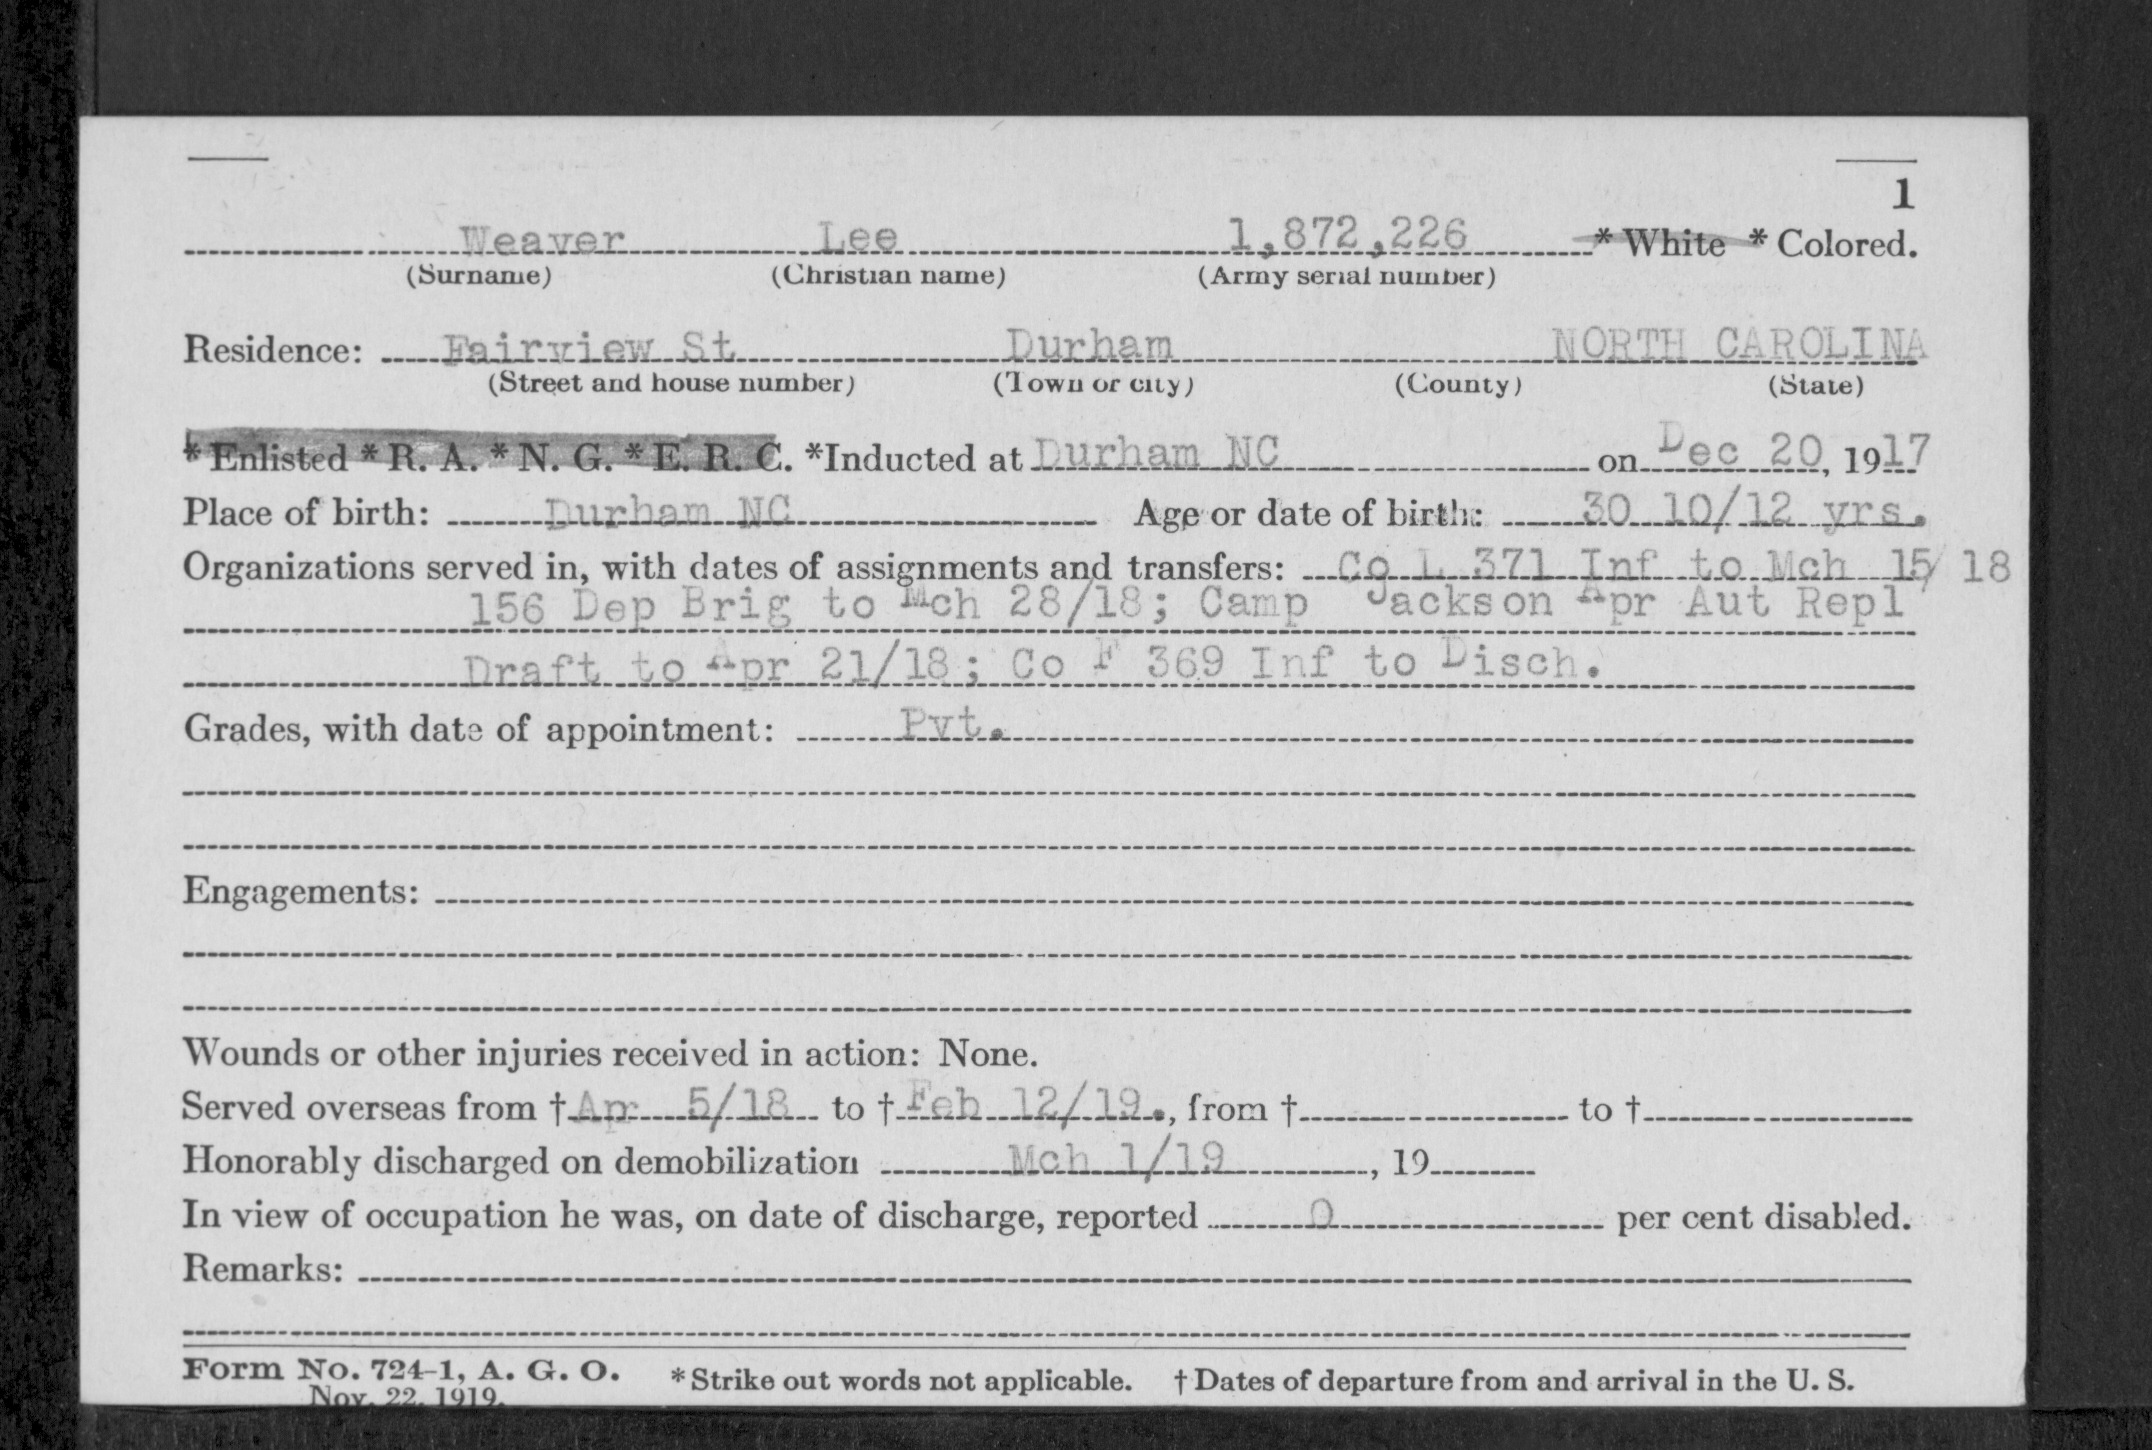 1
Weaver Lee 1,872,226 * White * Colored.
(Surname) (Christian name) (Army serial number)
Residence: Fairview St Durham NORTH CAROLINA
(Street and house number) (Town or city) (County) (State)
* Enlisted * R. A. * N. G. * E. R. C. *Inducted at Durham NC on Dec 20, 1917
Place of birth: Durham NC Age or date of birth: 30 10/12 yrs.
Organizations served in, with dates of assignments and transfers: Co L 371 Inf to Mch 15/ 18
156 Dep Brig to Mch 28/18; Camp Jackson Apr Aut Repl
Draft to Apr 21/18; Co F 369 Inf to Disch.
Grades, with date of appointment: Pvt.
Engagements:
Wounds or other injuries received in action: None.
Served overseas from † Apr 5/18 to † Feb 12/19., from † to †
Honorably discharged on demobilization Mch 1/19, 19
In view of occupation he was, on date of discharge, reported 0 per cent disabled.
Remarks:
Form No. 724-1, A. G. O. * Strike out words not applicable. † Dates of departure from and arrival in the U. S.
Nov. 22, 1919.